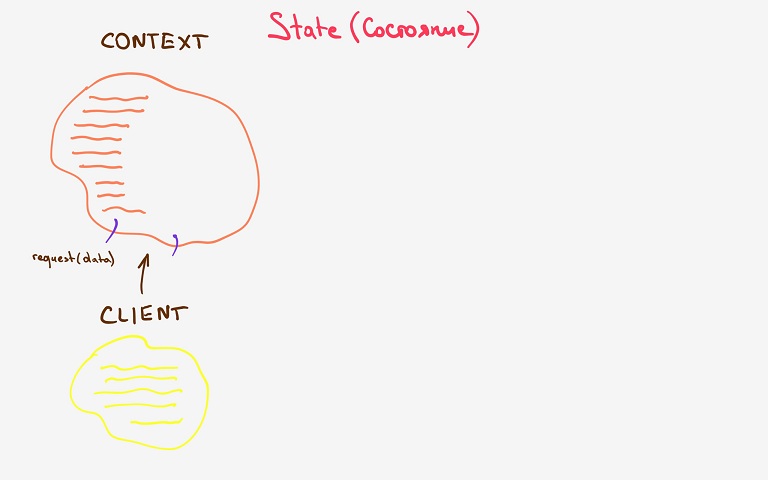 State (Состояние)
CONTEXT
request(data)
CLIENT